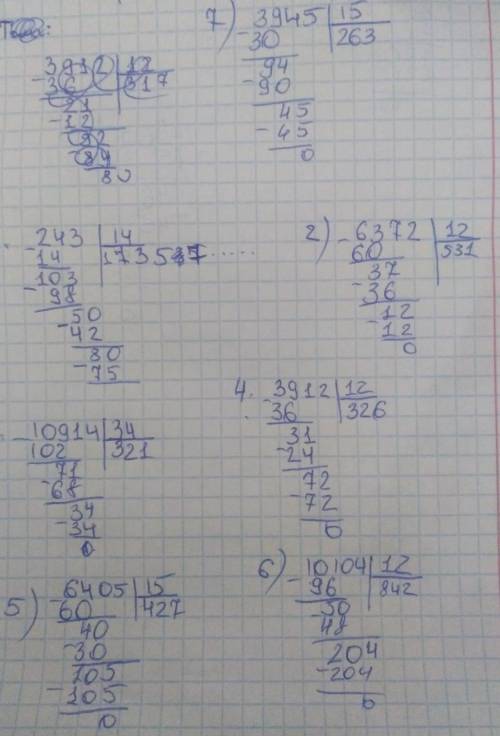 3912 | 12
- 36 | 317
21
- 12
92
- 84
80
7) 3945 | 15
- 30 | 263
94
- 90
45
- 45
0
- 243 | 14
14 | 173537.....
- 103
98
- 50
42
80
- 75
2) - 6372 | 12
60 | 531
37
- 36
12
- 12
0
- 10914 | 34
102 | 321
71
- 68
34
- 34
0
4. - 3912 | 12
36 | 326
31
- 24
72
- 72
0
5) - 6405 | 15
60 | 427
40
- 30
105
- 105
0
6) - 10104 | 12
96 | 842
- 50
48
204
- 204
0